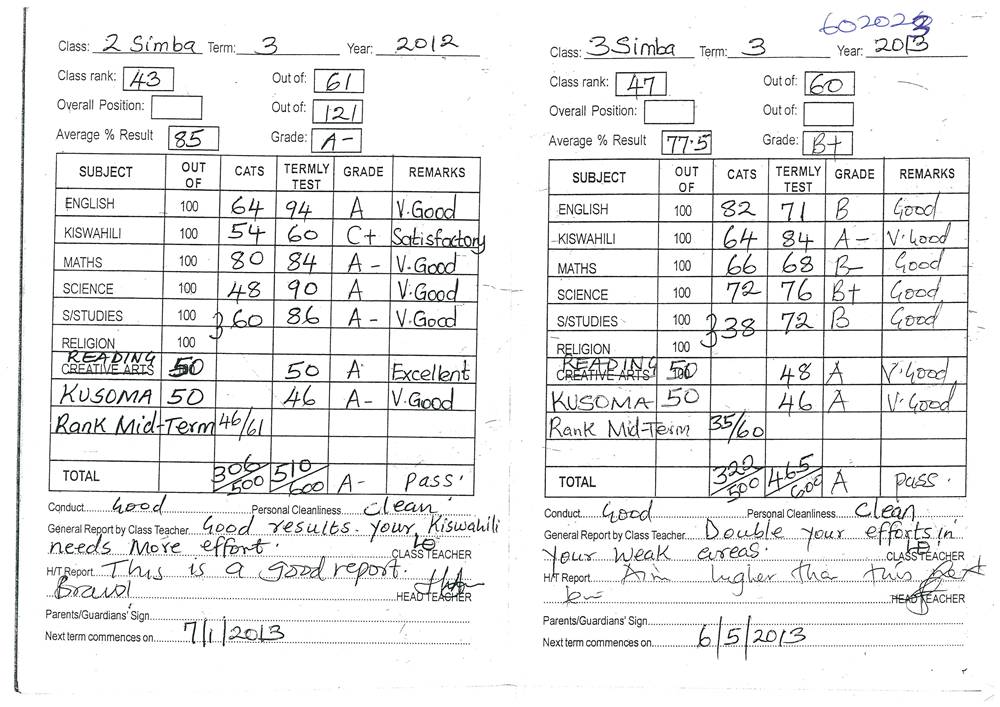 Class: 2 Simba Term: 3 Year: 2012
Class rank: 43 Out of: 61
Overall Position: Out of: 121
Average % Result 85 Grade: A-
SUBJECT OUT OF CATS TERMLY TEST GRADE REMARKS
ENGLISH 100 64 94 A V.Good
KISWAHILI 100 54 60 C+ Satisfactory
MATHS 100 80 84 A- V.Good
SCIENCE 100 48 90 A V.Good
S/STUDIES 100 60 86 A- V.Good
RELIGION 100
READING
CREATIVE ARTS 50 50 A Excellent
KUSOMA 50 46 A- V.Good
Rank Mid-Term 46/61
TOTAL 306/500 510/600 A- Pass.
Conduct Good Personal Cleanliness Clean
General Report by Class Teacher Good results. Your Kiswahili
needs More effort.
CLASS TEACHER
H/T Report This is a good report.
HEAD TEACHER
Parents/Guardians' Sign
Next term commences on 7/1/2013
602022
Class: 3 Simba Term: 3 Year: 2013
Class rank: 47 Out of: 60
Overall Position: Out of:
Average % Result 77.5 Grade: B+
SUBJECT OUT OF CATS TERMLY TEST GRADE REMARKS
ENGLISH 100 82 71 B Good
KISWAHILI 100 64 84 A- V.Good
MATHS 100 66 68 B- Good
SCIENCE 100 72 76 B+ Good
S/STUDIES 100 38 72 B Good
RELIGION 100
READING
CREATIVE ARTS 50 48 A V.Good
KUSOMA 50 46 A V.Good
Rank Mid-Term 35/60
TOTAL 322/500 465/600 A pass.
Conduct Good Personal Cleanliness Clean
General Report by Class Teacher Double your efforts in
your weak areas.
CLASS TEACHER
H/T Report Aim higher than this next
HEAD TEACHER
Parents/Guardians' Sign
Next term commences on 6/5/2013